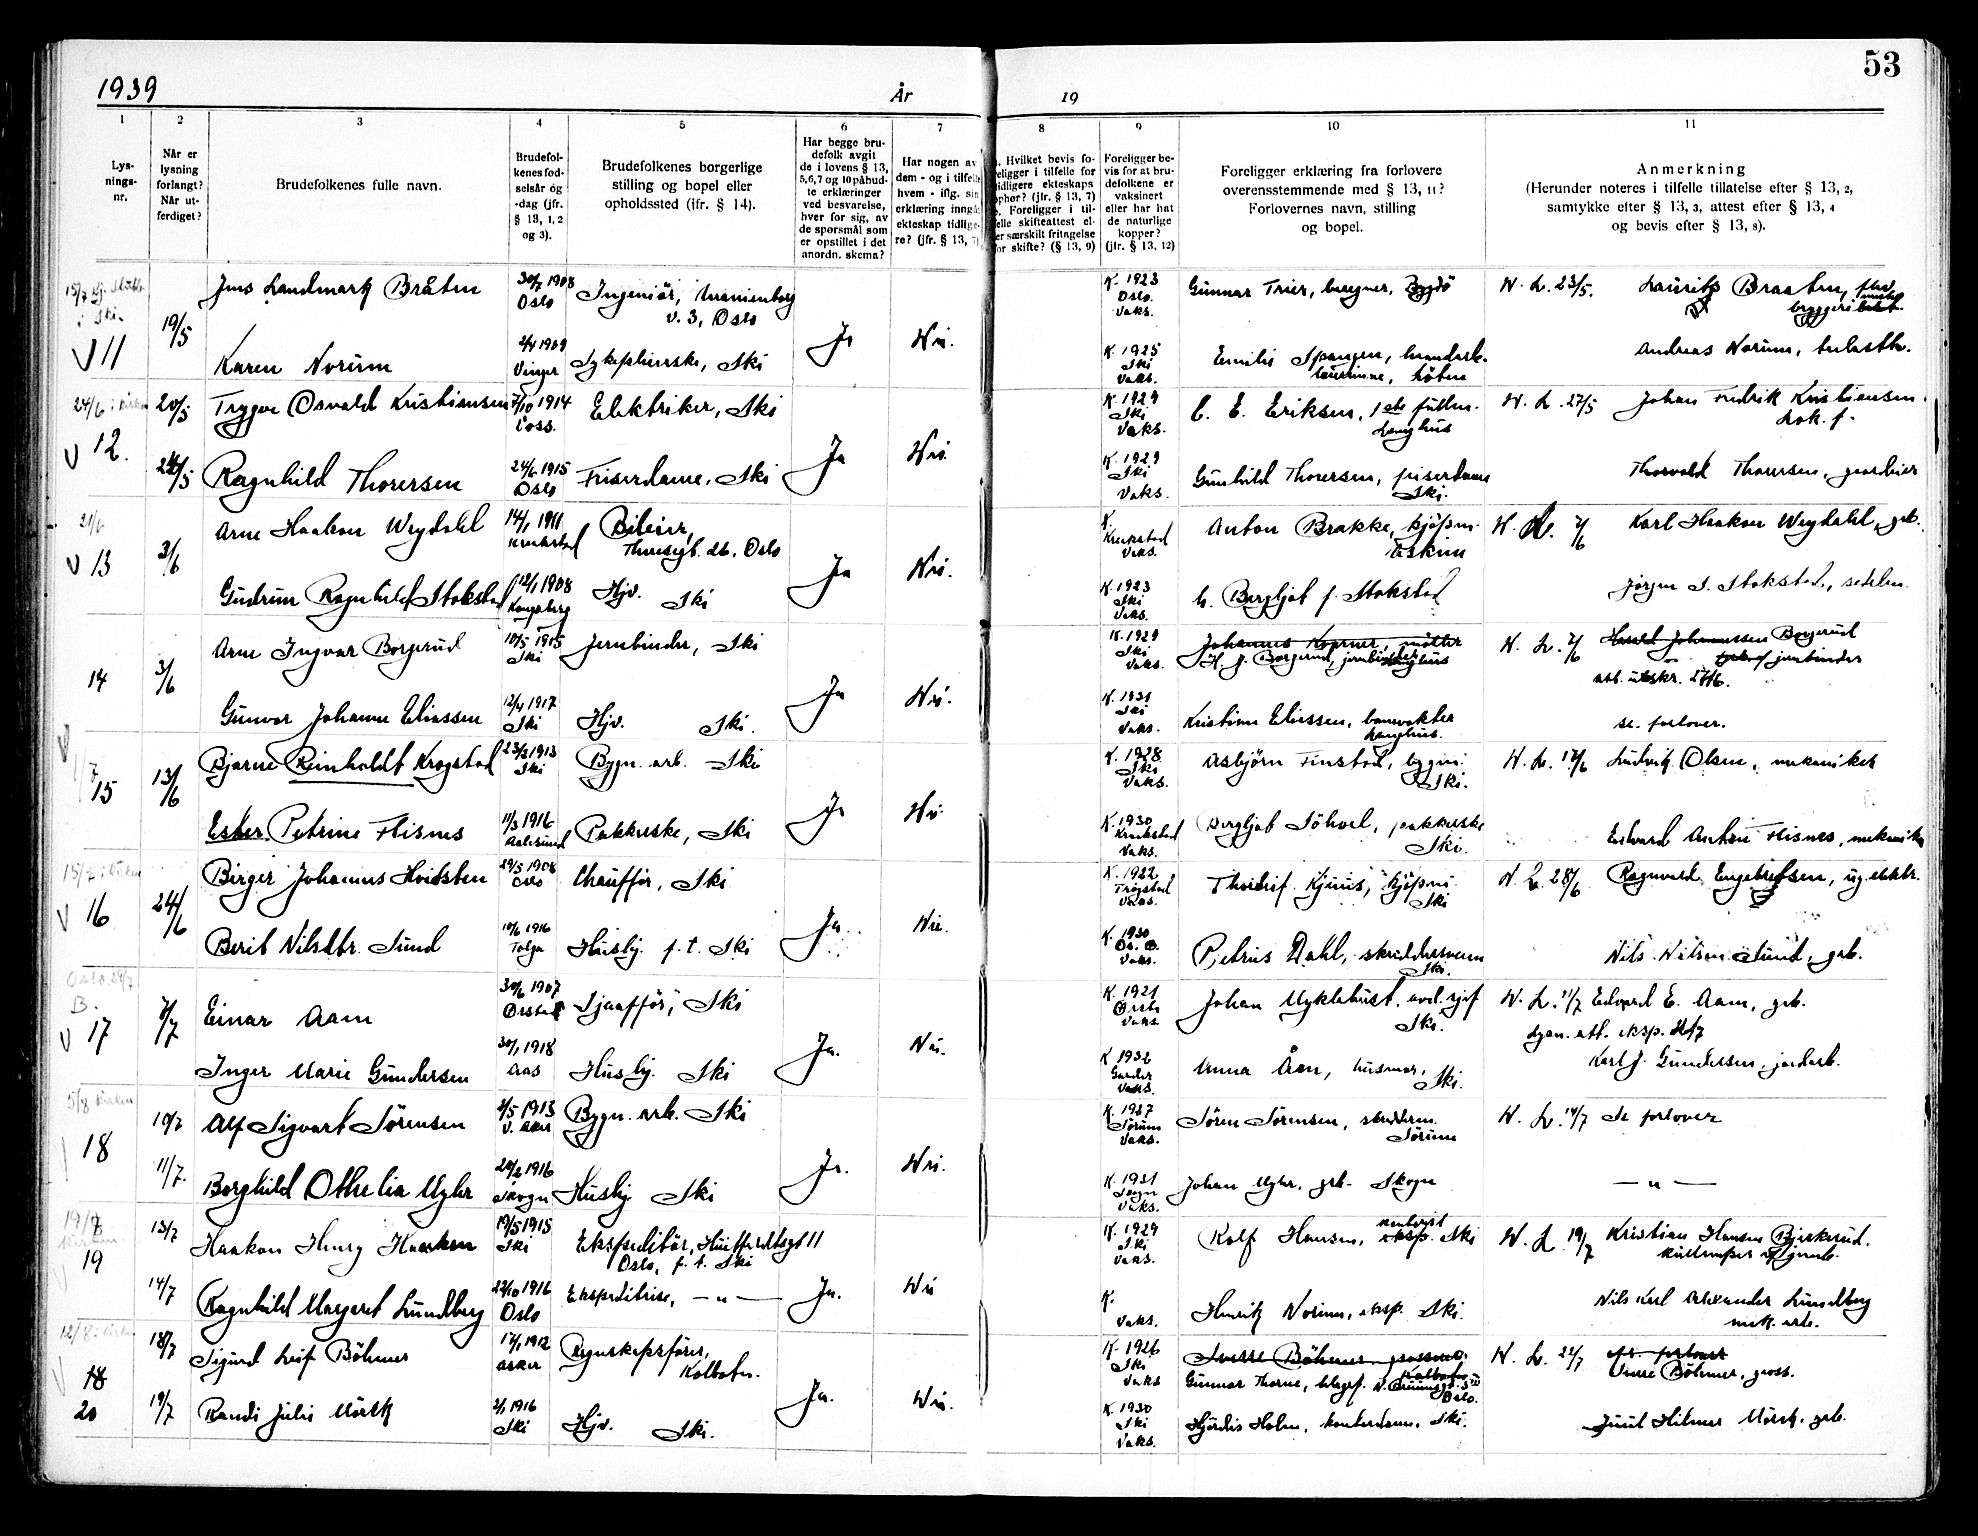 53
1939
År
19
1
2
3
4
5
6
7
8
9
10
11
Lys-
nings-
nr.
Når er
lysning
forlangt?
Når ut-
ferdiget?
Brudefolkenes fulle navn.
Brudefol-
kenes fød-
selsår og
-dag (jfr.
§ 13, 1, 2
og 3).
Brudefolkenes borgerlige
stilling og bopel eller
opholdssted (jfr. § 14).
Har begge bru-
defolk avgit
de i lovens § 13,
5, 6, 7 og 10 påbud-
te erklæringer
ved besvarelse,
hver for sig, av
de spørsmål som
er opstillet i det
anordn. skema?
Har nogen av
dem - og i tilfelle
hvem - iflg. sin
erklæring inngå
ekteskap tidlige-
re? (jfr. § 13, 7)
Hvilket bevis fo-
religger i tilfelle for
tidligere ekteskaps
ophør? (jfr. § 13, 7)
Foreligger i til-
felle skifteattest el-
ler særskilt fritagelse
for skifte? (§ 13, 9)
Foreligger be-
vis for at bru-
defolkene er
vaksinert
eller har hat
de naturlige
kopper?
(jfr. § 13, 12)
Foreligger erklæring fra forlovere
overensstemmende med § 13, 11?
Forlovernes navn, stilling
og bopel.
Anmerkning
(Herunder noteres i tilfelle tillatelse efter § 13, 2,
samtykke efter § 13, 3, attest efter § 13, 4
og bevis efter § 13, 8).
11
19/5
Jens Landmark Bråten
30/7 1908
Oslo
Ingeniør, Uranienborg
v. 3, Oslo
Ja
Nei.
K. 1923
Oslo.
Vaks.
Gunnar Trier, beregner, Bygdö
N. L. 23/5.
Lauritz Braaten,
Karen Norum
2/4 1909
Vinger
Sykepleierske, Ski
K. 1925
Ski
Vaks.
Emilie Spangen,
Andreas Norum,
24/6 i kirken
12.
20/5
Trygve Osvald Kristiansen
7/10 1914
Elektriker, Ski
Ja
Nei.
K. 1929
Ski
Vaks.
C. E. Eriksen,
Langhus
N. L. 27/5
Johan Fredrik Kristiansen
lok. f.
Ragnhild Thoresen
24/6 1915
Oslo
Friserdame, Ski
K. 1929
Ski
Vaks.
Gunhild Thoresen, friserdame
Ski.
Thorvald Thoresen, gaardeier
21/6
13
3/6
Arne Haakon Weydahl
14/1 1911
Kraakstad
Bileier,
Oslo
Ja
Nei.
K.
Kraakstad
Vaks.
Anton Brakke, kjöpm.
Askim
N. L. 7/6
Karl Haakon Weydahl, grb.
Gudrun Ragnhild Stokstad
12/1 1908
Kongsberg
Hjv. Ski
K. 1923
Ski
Vaks.
Bergljot f. Stokstad
Jörgen S. Stokstad,
14
3/6
Arne Ingvar Borgerud
10/5 1915
Ski
Jernbinder, Ski
Ja
Nei.
K. 1929
Ski
Vaks.
H. J. Borgerud, jernbinder
Langhus
N. L. 7/6
Harald Johannessen Borgerud
jernbinder
att. utskr. 27/6.
Gunvor Johanne Eliassen
12/4 1917
Ski
Hjv. Ski.
K. 1931
Ski
Vaks.
Kristian Eliassen, banevokter
Langhus.
se. forlover.
1/7
15
13/6
Bjarne Reinholdt Krogstad
23/3 1913
Ski
Bygn. arb. Ski
Ja
Nei
K. 1928
Ski
Vaks.
Asbjörn Finstad, bygm.
Ski.
N. L. 17/6
Ludvik Olsen, mekaniker
Ester Petrine Flisnes
11/3 1916
Aalesund
Pakkerske, Ski
K. 1930
Kraakstad
Vaks.
Bergljot Söhoel, pakkerske
Ski.
Edvard Anton Flisnes, mekaniker
15/7 i kirken
16
24/6
Birger Johannes Hvidsten
29/5 1908
Oslo
Chauffør, Ski
Ja.
Nei.
K. 1922
Trøgstad
Vaks.
Thorleif Kjuus, kjöpm.
Ski
N. L. 28/6
Ragnvald Engebretsen,
Berit Nilsdtr. Sund
10/6 1916
Tolga
Husby. f. t. Ski
K. 1930
Vaks.
Petrius Dahl, skreddersvenn
Ski.
Nils Nilsen Sund, grb.
Oslo, 24/7
B.
17
7/7
Einar Aam
30/6 1907
Ørsta
Sjaafför, Ski
Ja.
Nei.
K. 1921
Ørsta
Vaks
Johan Myklebust, avd. sjef
Ski.
N. L. 11/7
Edvard E. Aam, grb.
Inger Marie Gundersen
30/1 1918
Aas
Husby. Ski
K. 1932
Garder
Vaks.
Anna Åan, husmor,
Ski.
Karl J. Gundersen, jordarb.
5/8 kirken
18
10/7
Alf Sigvart Sørensen
2/5 1913
V. Aker
Bygn. arb. Ski
Ja.
Nei.
K. 1927
Sørum
Vaks.
Sören Sörensen,
Sörum
N. L. 14/7
Se forlover
11/7.
Borghild Othelia Myhr
20/2 1916
Skogn
Husby Ski
K. 1931
Skogn
Vaks.
Johan Myhr, grb. Skogn
— " —
19
13/7
Haakon Henry Haaken
19/5 1915
Ski
Ekspeditör, Huitfeldtsgt 11
Oslo, f. t. Ski
Ja.
Nei
K. 1929
Ski
Vaks.
Rolf Hansen, Ski
N. L. 19/7
Kristian Hansen Bjerkerud.
14/7
Ragnhild Margaret Lundberg
22/10 1916
Oslo
Ekspeditrise, — " —
K.
Vaks.
Henrik Norum, eksp. Ski.
Nils Karl Alexander Lundberg
mek. arb.
12/8 i kirken
18
20
18/7
Sigurd Leif Böhmer
17/1 1912
Asker
Regnskapsförer,
Kolbotn.
Ja.
Nei.
K. 1926
Ski
Vaks
Sverre Böhmer, grosserer
Kolbotn
Gunnar Thorne,
Oslo.
N. L. 22/7
se. forlover
Sverre Böhmer, gross.
19/7
Randi Julie Mörck
2/1 1916
Ski
Hjv. Ski.
K. 1930
Ski
Vaks.
Hjördis Holm, kontordame, Ski.
Juul Hilmer Mörck, grb.